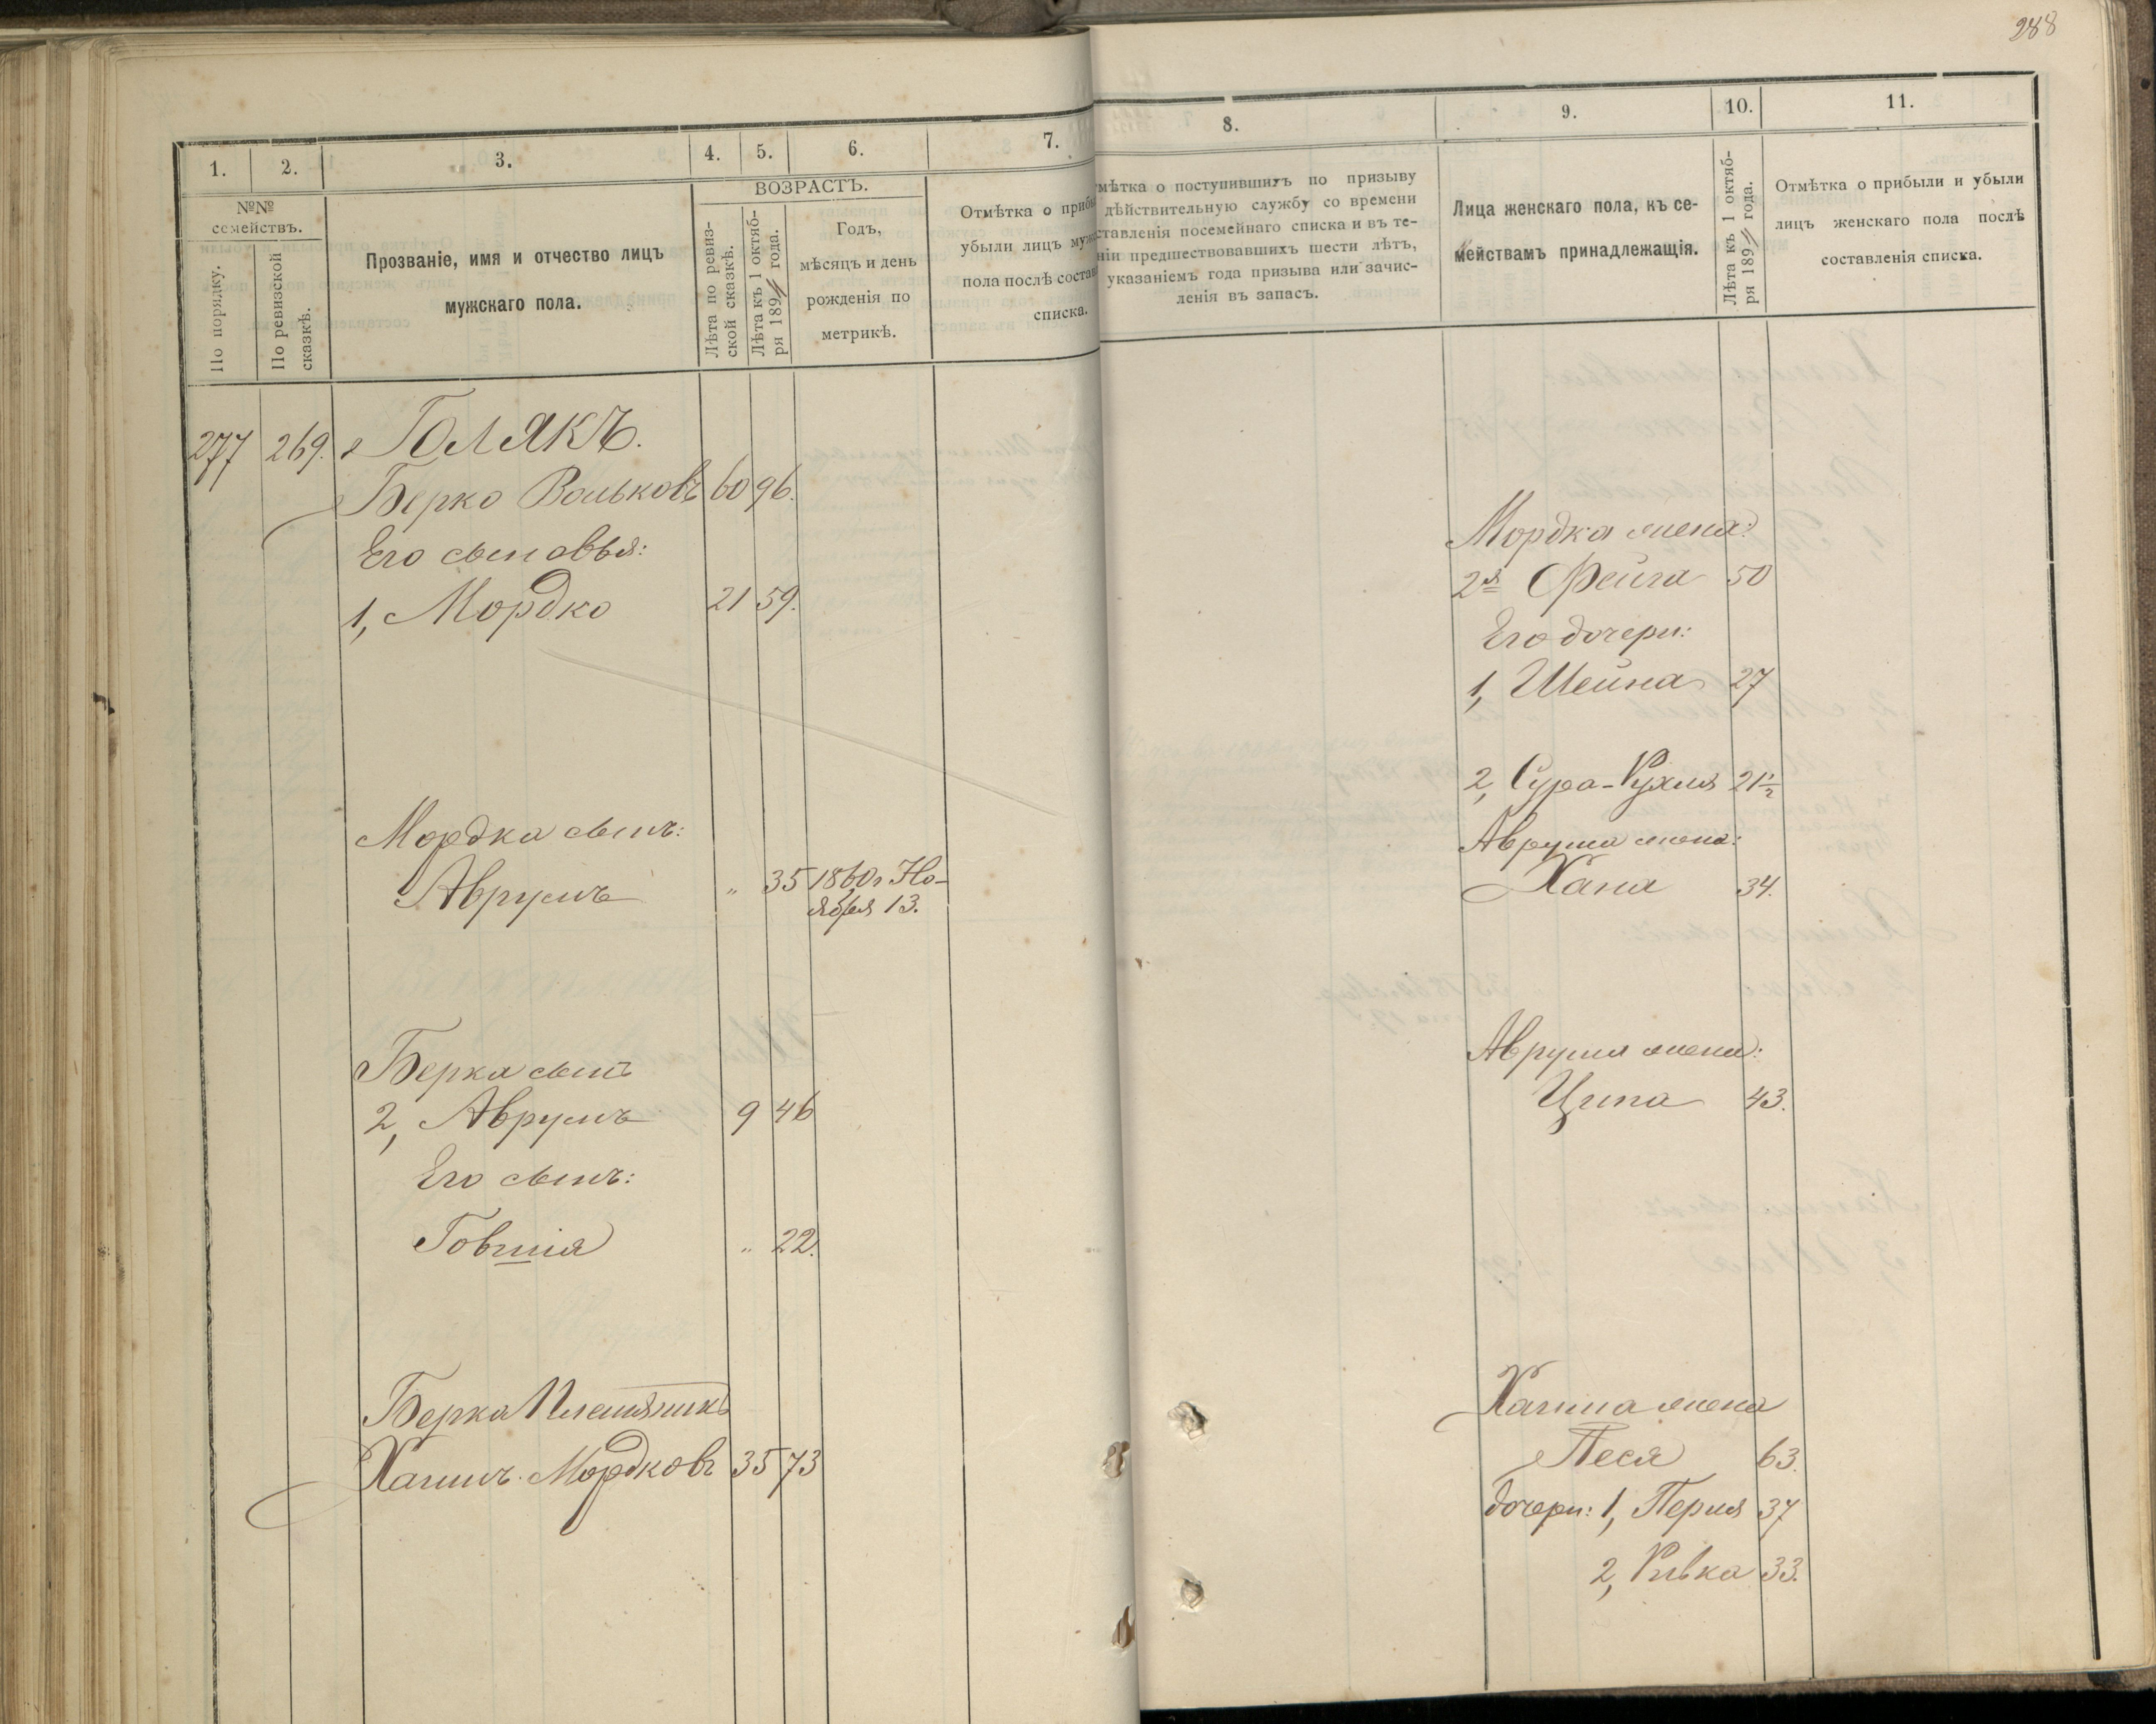 288
1. 2. 3. 4. 5. 6. 7.
№№ семействъ.
По порядку.
По ревизской сказкѣ.
Прозваніе, имя и отчество лицъ
мужскаго пола.
ВОЗРАСТЪ.
Лѣта по ревиз-
ской сказкѣ.
Лѣта къ 1 октяб-
ря 189 года.
Годъ,
мѣсяцъ и день
рожденія по
метрикѣ.
Отмѣтка о прибы
убыли лицъ муж
пола послѣ состав
списка.
277 269. ГОЛЯКЪ.
Берко Вольковъ 60 96.
Его сыновья:
1, Мордко 21 59.
Мордка сынъ:
Аврумъ " 35 1860 г Но-
ября 13.
Берка сынъ
2, Аврумъ 9 46
Его сынъ:
Товшія " 22.
Берка Племянникъ
Хаимъ Мордковъ 35 73
8. 9. 10. 11.
мѣтка о поступившихъ по призыву
дѣйствительную службу со времени
ставленія посемейнаго списка и въ те-
ніи предшествовавшихъ шести лѣтъ,
указаніемъ года призыва или зачис-
ленія въ запасъ.
Лица женскаго пола, къ се-
мействамъ принадлежащія.
Лѣта къ 1 октяб-
ря 189 года.
Отмѣтка о прибыли и убыли
лицъ женскаго пола послѣ
составленія списка.
Мордка жена:
2я Фейга 50
Его дочери:
1, Шейна 27
2, Сура-Рухля 21½
Аврума жена:
Хана 34.
Аврума жена:
Ципа 43.
Хаима жена
Песя 63.
дочери: 1, Перля 37
2, Ривка 33.